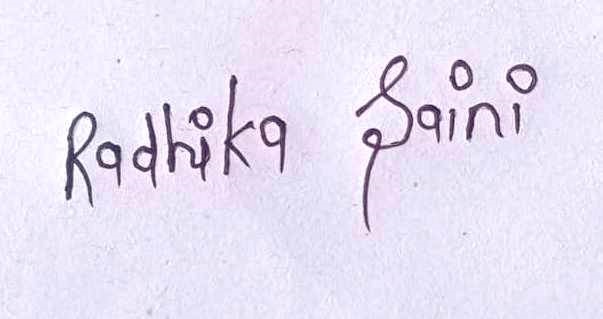 Radhika Saini